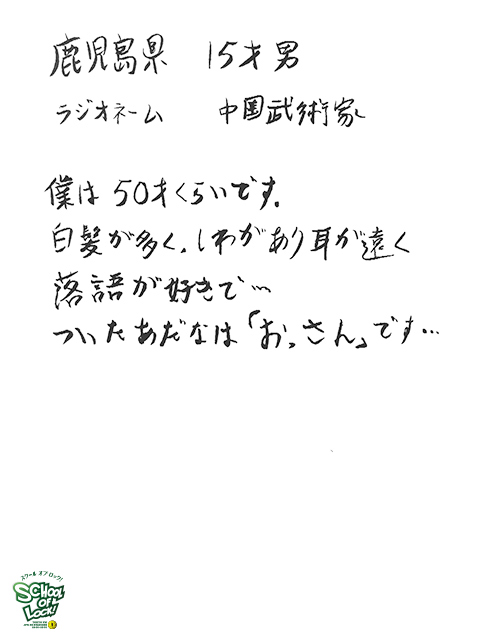 鹿児島県 15才男
ラジオネーム 中国武術家
僕は 50才くらいです。
白髪が多く、しわがあり耳が遠く
落語が好きで…
ついたあだなは「おっさん」です…
スクール オブ ロック!
SCHOOL
OF
LOCK!